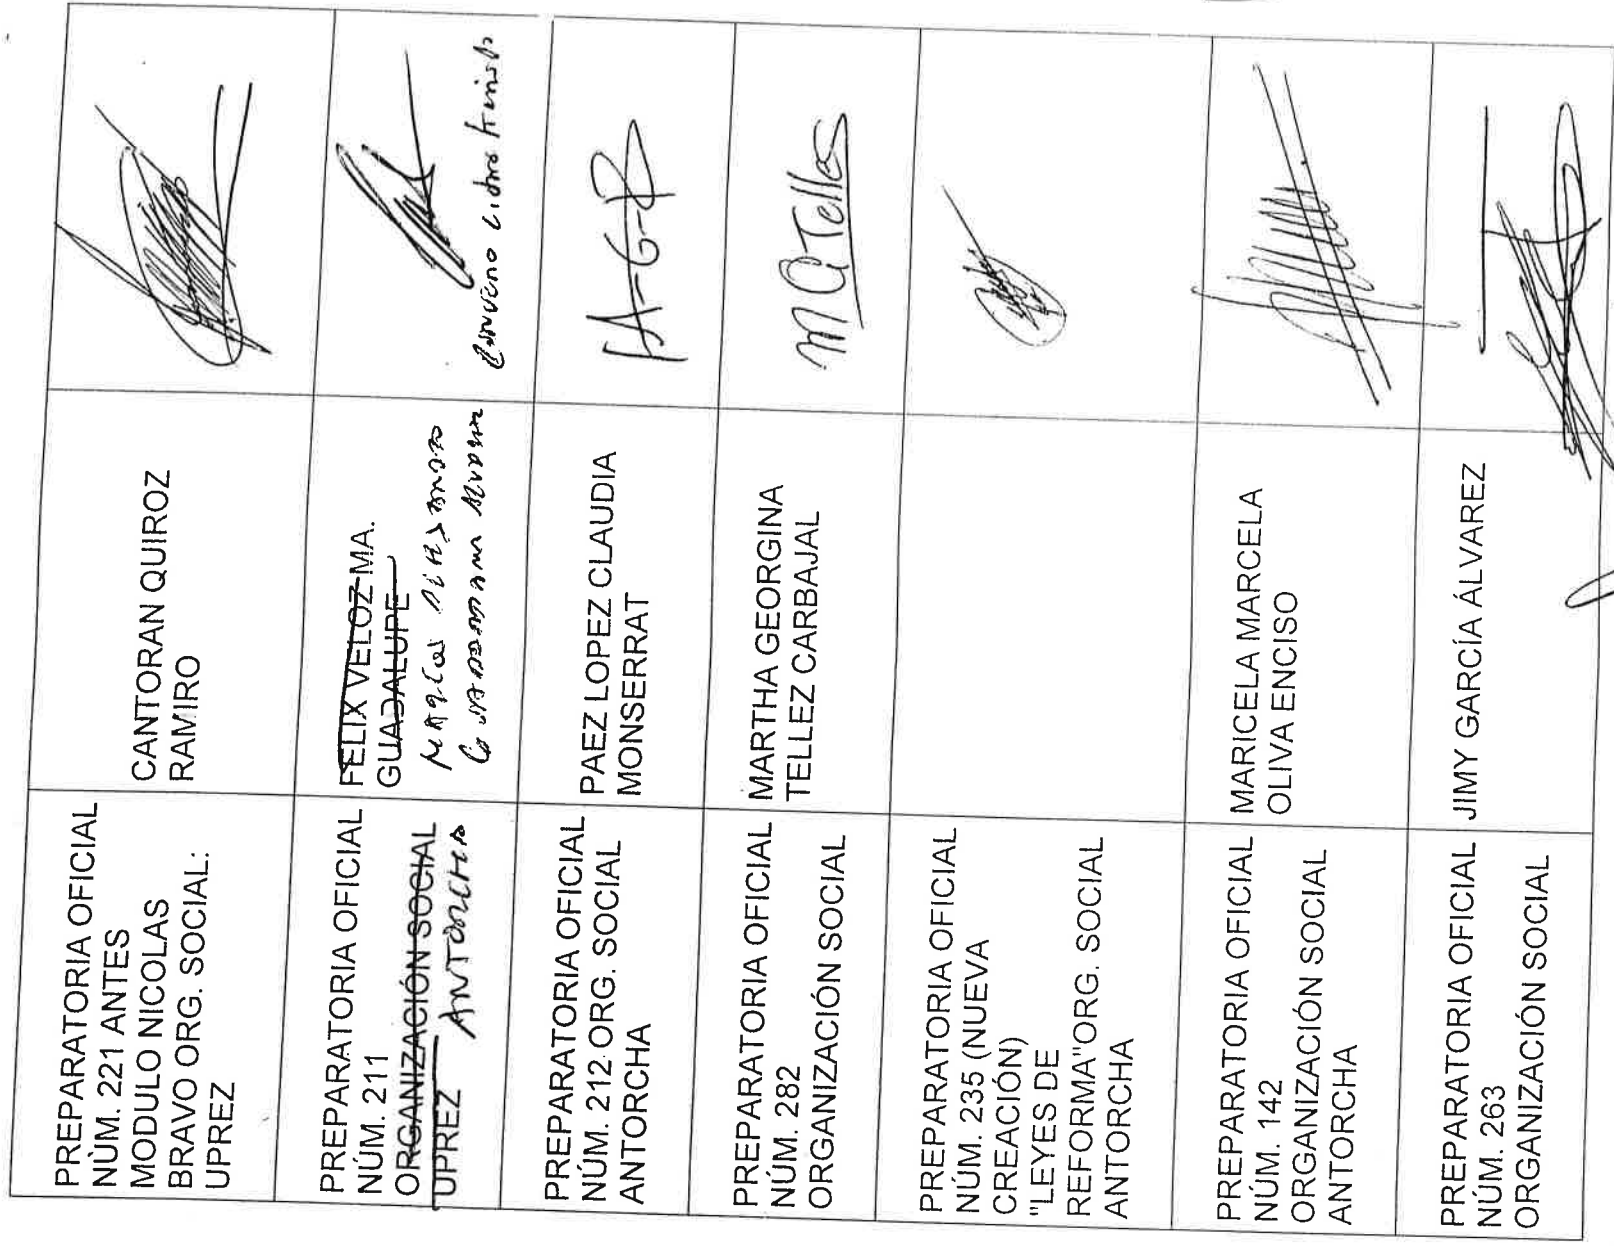 PREPARATORIA OFICIAL
NÙM. 221 ANTES
MODULO NICOLAS
BRAVO ORG. SOCIAL:
UPREZ
CANTORAN QUIROZ
RAMIRO
PREPARATORIA OFICIAL
NÚM. 211
ORGANIZACIÓN SOCIAL
UPREZ
ANTORCHA
FELIX VELOZ MA.
GUADALUPE
PREPARATORIA OFICIAL
NÚM. 212 ORG. SOCIAL
ANTORCHA
PAEZ LOPEZ CLAUDIA
MONSERRAT
PREPARATORIA OFICIAL
NÚM. 282
ORGANIZACIÓN SOCIAL
MARTHA GEORGINA
TELLEZ CARBAJAL
PREPARATORIA OFICIAL
NÚM. 235 (NUEVA
CREACIÓN)
"LEYES DE
REFORMA"ORG. SOCIAL
ANTORCHA
PREPARATORIA OFICIAL
NÚM. 142
ORGANIZACIÓN SOCIAL
ANTORCHA
MARICELA MARCELA
OLIVA ENCISO
PREPARATORIA OFICIAL
NÚM. 263
ORGANIZACIÓN SOCIAL
JIMY GARCÍA ÁLVAREZ